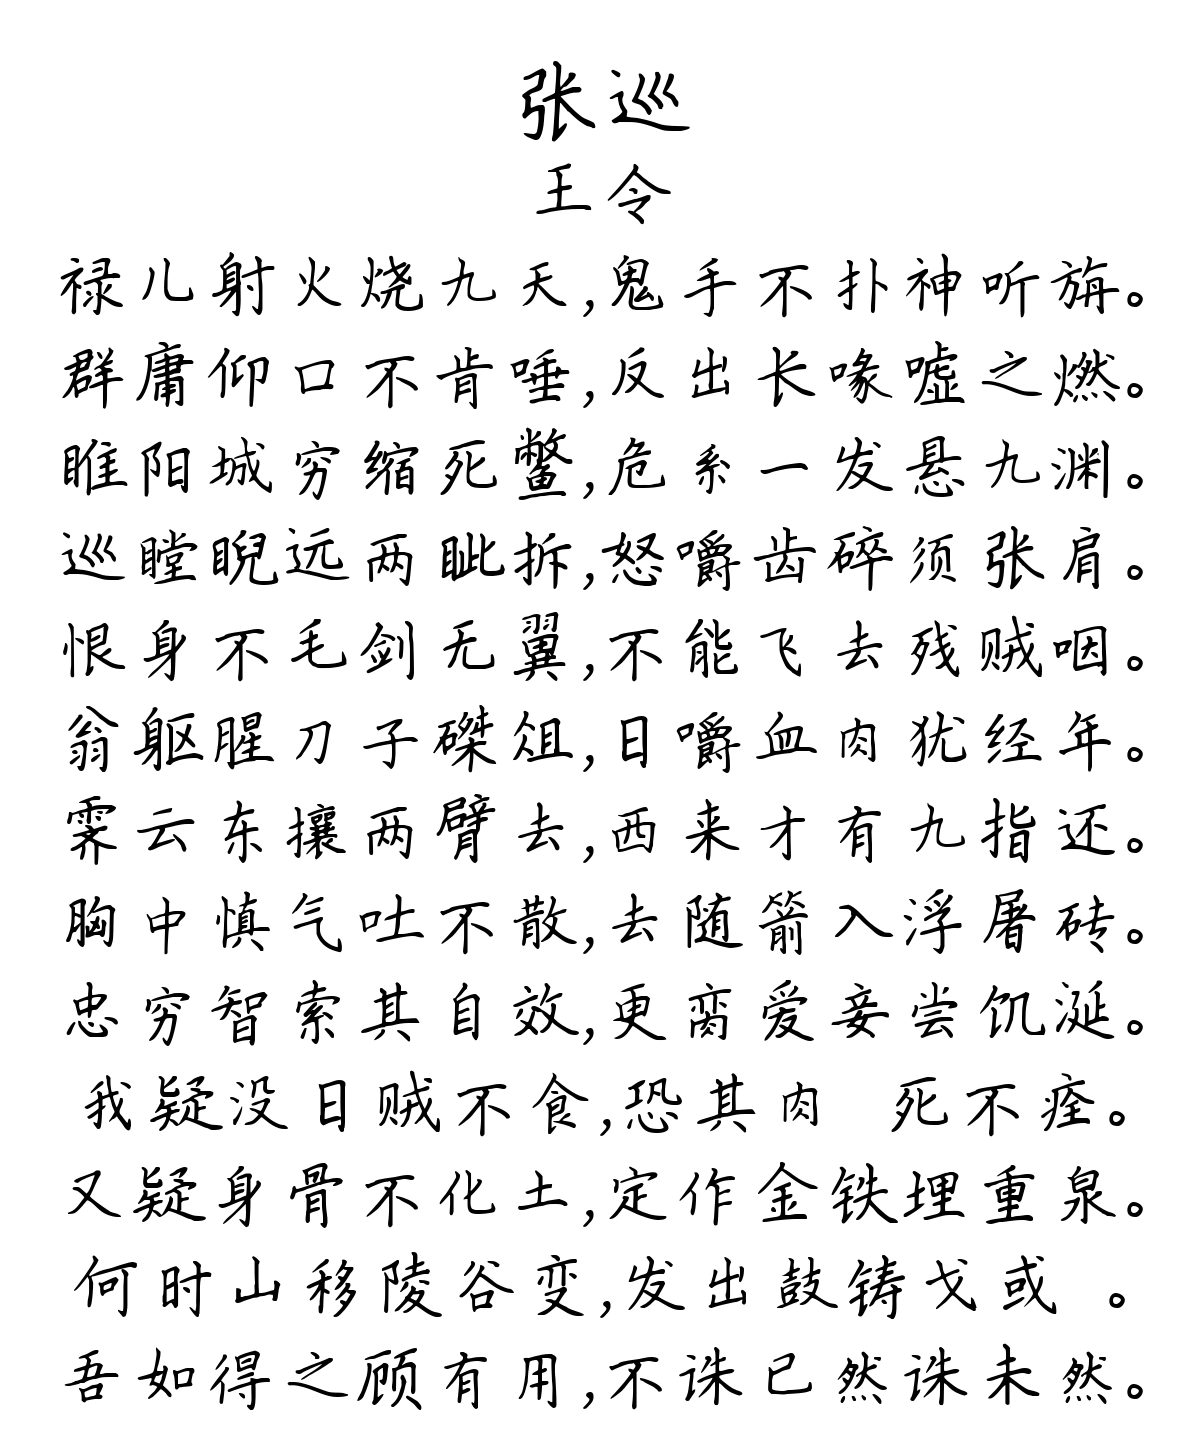 张巡
王令
禄儿射火烧九天,鬼手不扑神听旃。
群庸仰口不肯唾,反出长喙嘘之燃。
睢阳城穷缩死鳖,危系一发悬九渊。
巡瞠睨远两眦拆,怒嚼齿碎须张肩。
恨身不毛剑无翼,不能飞去残贼咽。
翁躯腥刀子磔俎,日嚼血肉犹经年。
霁云东攘两臂去,西来才有九指还。
胸中慎气吐不散,去随箭入浮屠砖。
忠穷智索其自效,更脔爱妾尝饥涎。
我疑没日贼不食,恐其肉 死不痊。
又疑身骨不化土,定作金铁埋重泉。
何时山移陵谷变,发出鼓铸戈或 。
吾如得之顾有用,不诛已然诛未然。